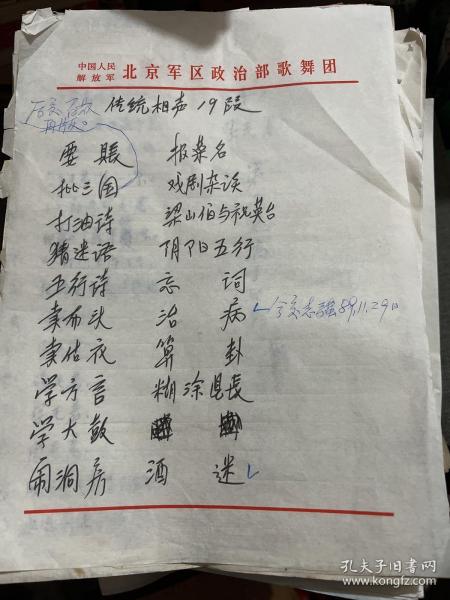 中国人民
解放军 北京军区政治部歌舞团
传统相声19段
要賬 报菜名
批三国 戏剧杂谈
打油诗 梁山伯与祝英台
猜迷语 阴阳五行
五行诗 忘词
卖布头 治病 89.11.29日
卖估衣 算卦
学方言 糊涂县长
学大鼓
闹洞房 酒迷
孔夫子旧书网
www.kongfz.com